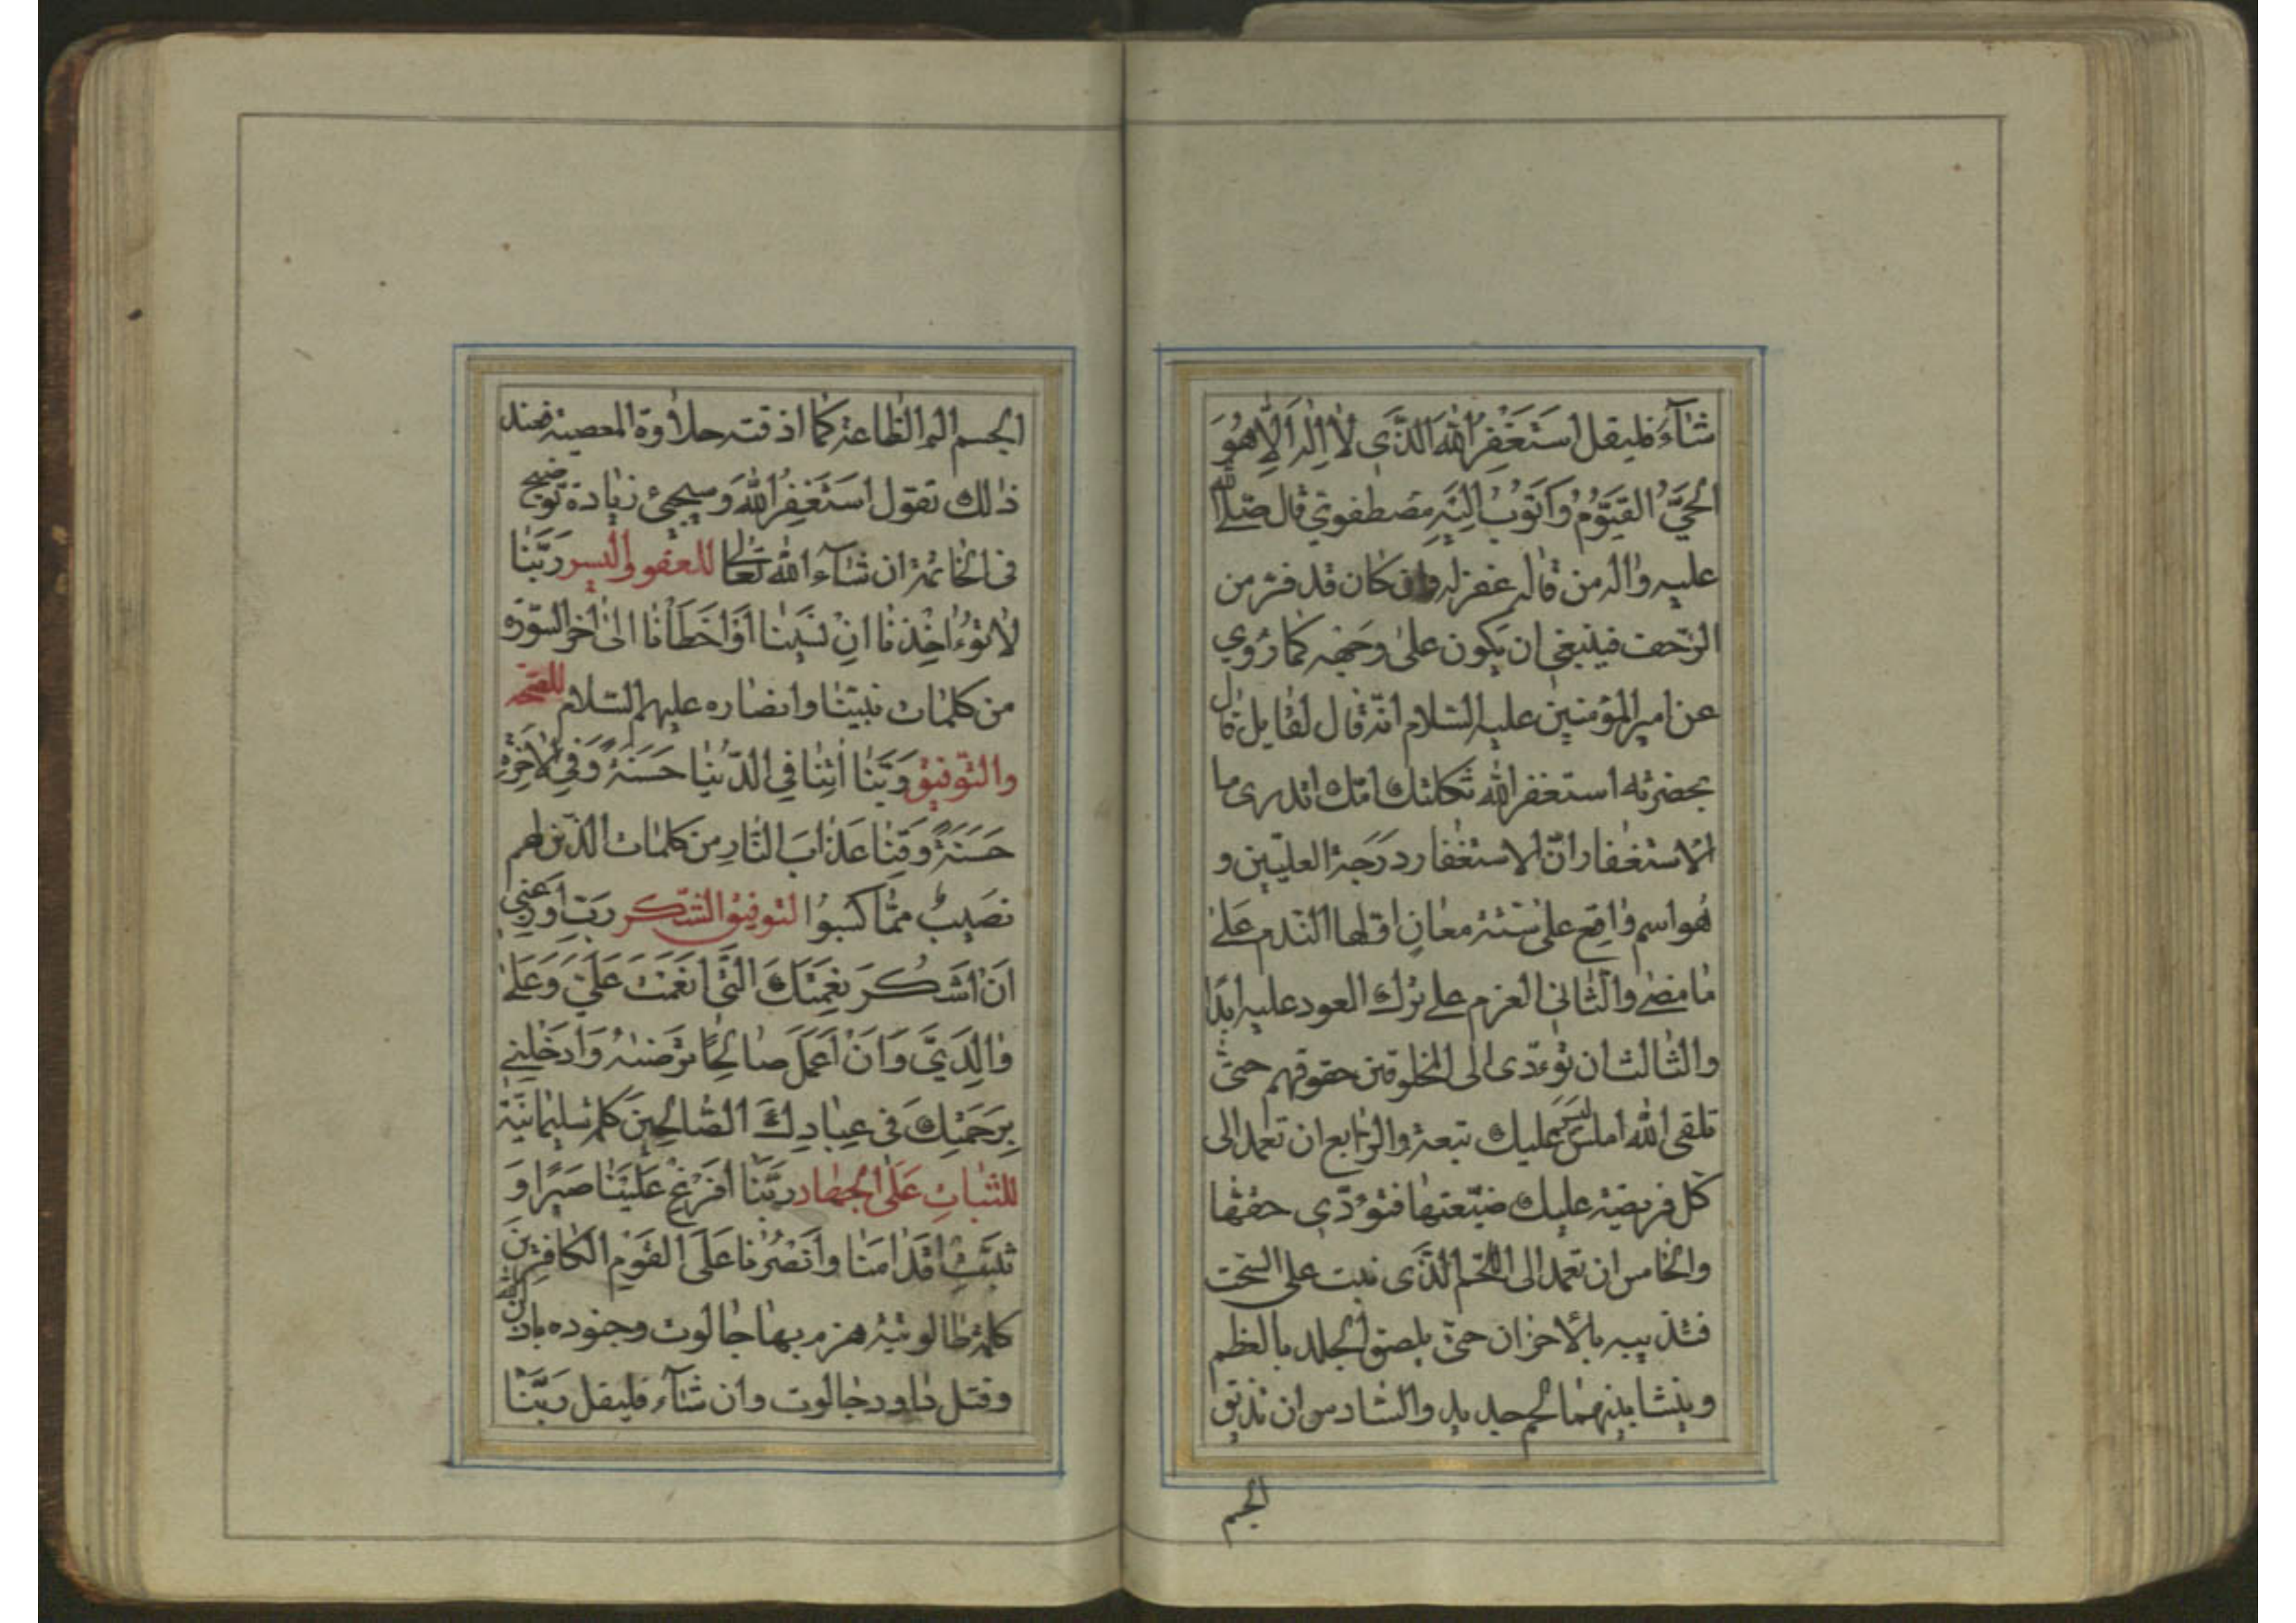 شآء فليقل اَستَغفِرُ اللهَ الَّذي لا اِلٰهَ اِلّا هُوَ
الحَيُّ القَيّوُمُ وَاَتوُبُ اِلَيهِ مصطفوي قال صلى الله
عليه واله من قاله غفر له وان كان قد فر من
الزحف فينبغي ان يكون على وجهه كما روي
عن امير المؤمنين عليه السلام انه قال لقايل قال
بحضرته استغفر الله ثكلتك امك اتدرى ما
الاستغفار ان الاستغفار درجة العليين و
هو اسم واقع على ستة معان اولها الندم على
ما مضى والثاني العزم على ترك العود عليه ابدا
والثالث ان تؤدى الى المخلوقين حقوقهم حتى
تلقى الله املس ليس عليك تبعة والرابع ان تعمد الى
كل فريضة عليك ضيعتها فتؤدي حقها
والخامس ان تعمد الى اللحم الذى نبت على السحت
فتذيبه بالاحزان حتى يلصق الجلد بالعظم
وينشا بينهما لحم جديد والسادس ان تذيق
الجسم
الجسم الم الطاعة كما اذقته حلاوة المعصية فعند
ذلك تقول اَستَغفِرُ اللهَ وسيجيئ زيادة توضيح
فى الخاتمة ان شآء الله تعالى للعفو واليسر رَبَّنا
لا تؤُاخِذنا اِن نَسينا اَو اَخطَأنا الى اخر السورة
من كلمات نبينا وانصاره عليهم السلام للفتح
والتوفيق رَبَّنا اتِنا فِي الدُّنيا حَسَنَةً وَفِي الاخِرَةِ
حَسَنَةً وَقِنا عَذابَ النّارِ من كلمات الذين لهم
نصيب مما كسبوا لتوفيق الشكر رَبِّ اَوزِعني
اَن اَشكُرَ نِعمَتَكَ الَّتي اَنعَمتَ عَلَيَّ وَعَلى
والِدَيَّ وَاَن اَعمَلَ صالِحًا تَرضيهُ وَاَدخِلني
بِرَحمَتِكَ في عِبادِكَ الصّالِحينَ كلمة سليمانية
للثبات على الجهاد رَبَّنا اَفرِغ عَلَينا صَبرًا وَ
ثَبِّت اَقدامَنا وَانصُرنا عَلَى القَومِ الكافِرينَ
كلمة طالوتية هزم بها جالوت وجنوده باذن الله
وقتل داود جالوت وان شآء فليقل ربَّنا